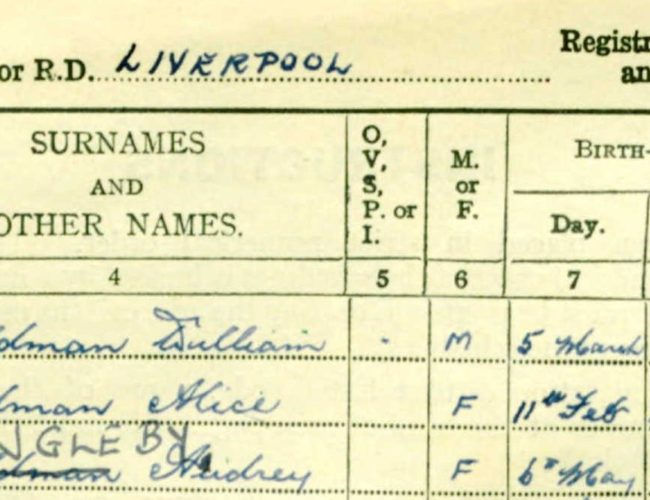 Registr
or R.D. LIVERPOOL an
SURNAMES AND OTHER NAMES. O, V, S, P. or I. M. or F. BIRTH-
Day.
4 5 6 7
dman William - M 5 March
dman Alice F 11th Feb
NGLEBY
dman Audrey F 6th May